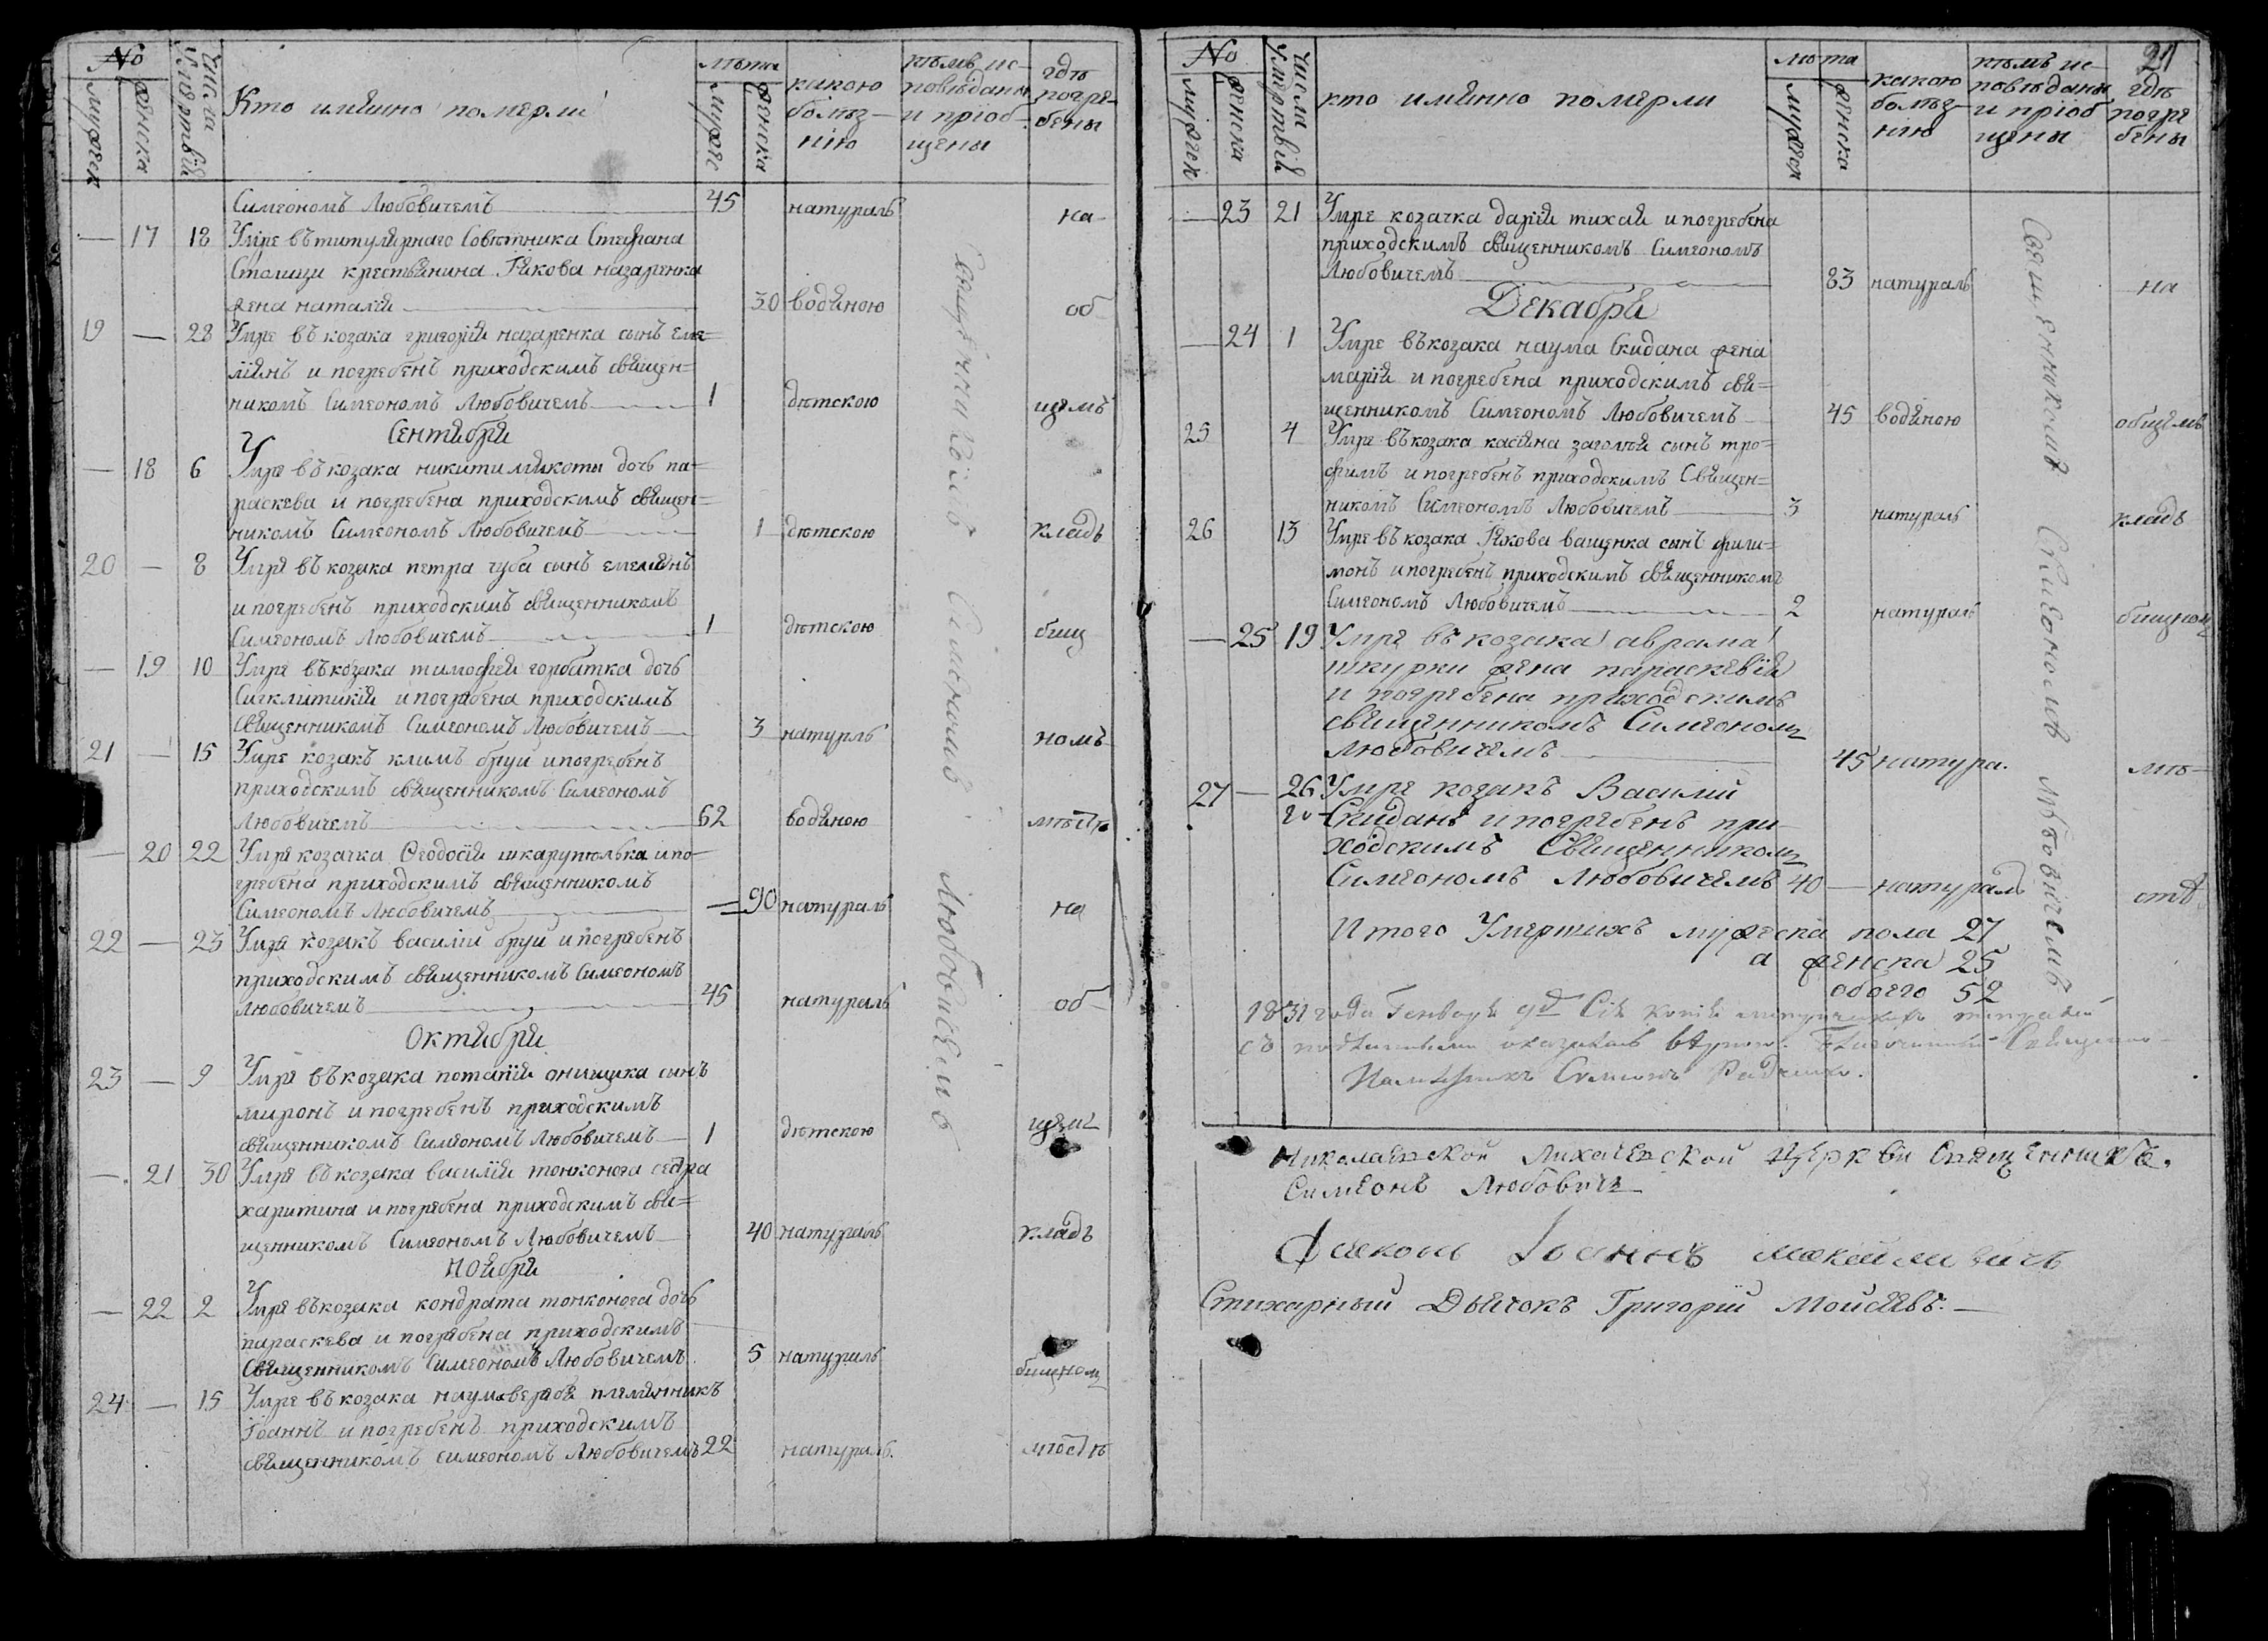 №
мужеск
женска
Числа
Умертвій
Кто имянно померли
лѣта
мужес
женска
какою
болѣз-
нію
кѣмъ ис-
повѣданы
и пріоб-
щены
гдѣ
погре-
бены
Симеономъ Любовичемъ 45 натураль на-
— 17 18 Умре въ титулярнаго Совѣтника Стефана
крестьянина Якова назаренка
жена наталія 30 водяною об
19 — 28 Умре въ козака григорія назаренка сынъ еме=
ліянъ и погребенъ приходскимъ священ=
никомъ Симеономъ Любовичемъ 1 дѣтскою щемъ
Сентября
— 18 6 Умре въ козака никити дочь па=
раскева и погребена приходскимъ священ=
никомъ Симеономъ Любовичемъ 1 дѣтскою кладъ
20 — 8 Умре въ козака петра чуба сынъ емелянъ
и погребенъ приходскимъ священникомъ
Симеономъ Любовичемъ 1 дѣтскою бищ
— 19 10 Умре въ козака тимофея горбатка дочь
Сигклитикія и погребена приходскимъ
священникомъ Симеономъ Любовичемъ 3 натурль номъ
21 — 15 Умре козакъ климъ бруй и погребенъ
приходскимъ священникомъ Симеономъ
Любовичемъ 62 водяною мѣстѣ
— 20 22 Умре козачка Феодосія шкарупилька и по-
гребена приходскимъ священникомъ
Симеономъ Любовичемъ — 90 натураль на
22 — 23 Умре козакъ василій бруй и погребенъ
приходскимъ священникомъ Симеономъ
Любовичемъ 45 натураль об-
Октября
23 — 9 Умре въ козака потапія онищка сынъ
миронъ и погребенъ приходскимъ
священникомъ Симеономъ Любовичемъ 1 дѣтскою щем
— 21 30 Умре въ козака василія тонконога сестра
харитина и погребена приходскимъ свя=
щенникомъ Симеономъ Любовичемъ 40 натураль кладъ
Ноября
— 22 2 Умре въ козака кондрата тонконога дочь
параскева и погребена приходскимъ
Священникомъ Симеономъ Любовичемъ 5 натураль бищном
24 — 15 Умре въ козака наума племянникъ
Іоаннъ и погребенъ приходскимъ
священникомъ симеономъ Любовичемъ 22 натураль. мѣстѣ
Священникомъ Симеономъ Любовичемъ
№
мужеск
женска
числа
Умертвій
кто имянно померли
лѣта
мужеск
женска
какою
болѣз-
нію
кѣмъ ис-
повѣданы
и пріоб
щены
21
гдѣ
погре
бены
— 23 21 Умре козачка дарія тихая и погребена
приходскимъ священникомъ Симеономъ
Любовичемъ 83 натураль на
Декабря
— 24 1 Умре въ козака наума Скидана жена
марія и погребена приходскимъ свя=
щенникомъ Симеономъ Любовичемъ 45 водяною общемъ
25 4 Умре въ козака касіяна сынъ тро-
фимъ и погребенъ приходскимъ Священ=
никомъ Симеономъ Любовичемъ 3 натураль кладъ
26 13 Умре въ козака Якова ващенка сынъ фили=
монъ и погребенъ приходскимъ священникомъ
Симеономъ Любовичемъ 2 натураль бищном
— 25 19 Умре въ козака аврама
шкурки жена параскевія
и погребена приходскимъ
священникомъ Симеоном
Любовичемъ 45 натура. мѣ-
27 — 26 Умре козакъ Василій
Скиданъ и погребенъ при-
ходскимъ Священником
Симеономъ Любовичемъ 40 — натураль стѣ
Священникомъ Симеономъ Любовичемъ
Итого Умершихъ мужеска пола 27
а женска 25
обоего 52
1831 года Генваря 9д Сія копія
съ подлинными оказалась вѣрною. Священно-
Симеонъ
Николаевской Михаевской Церкви Священникъ.
Симеонъ Любович
Діаконъ Іоаннъ максимовичъ
Стихарный Дьячокъ Григорій Моисѣевъ.—